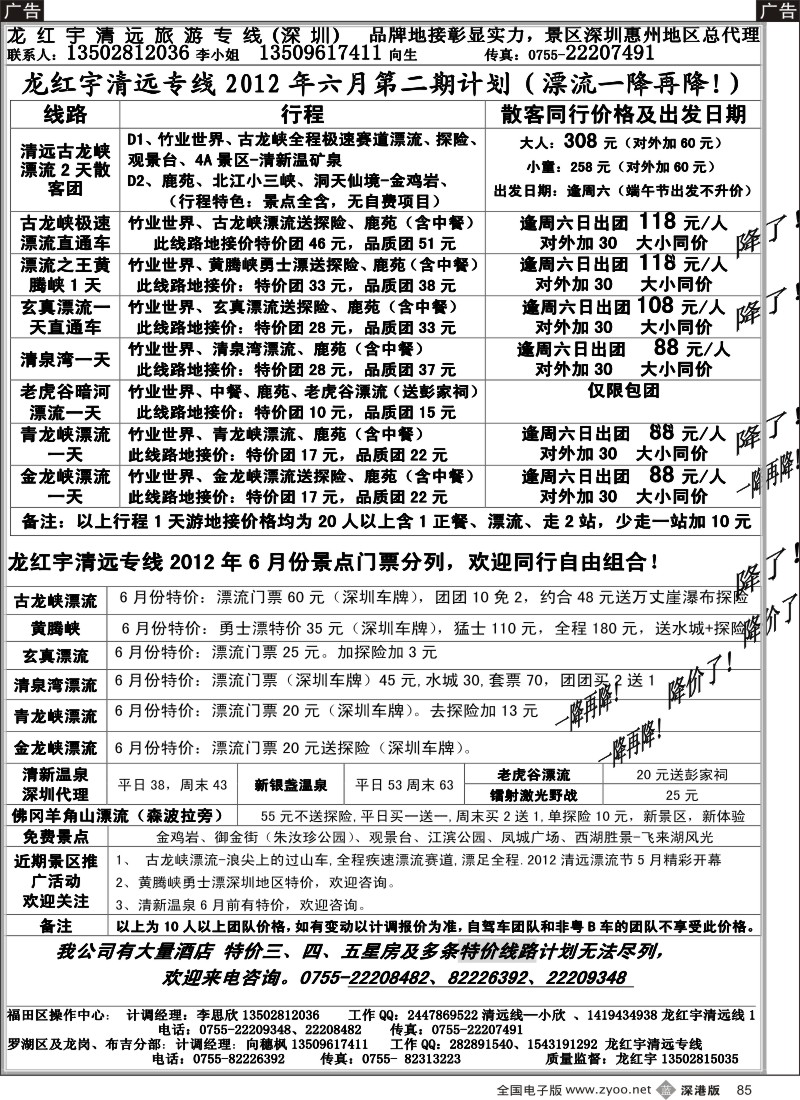 广告
广告
龙红宇清远旅游专线(深圳) 品牌地接彰显实力，景区深圳惠州地区总代理
联系人：13502812036 李小姐 13509617411 向生 传真：0755-22207491
龙红宇清远专线 2012 年六月第二期计划（漂流一降再降！）
线路 行程 散客同行价格及出发日期
清远古龙峡漂流 2 天散客团
D1、竹业世界、古龙峡全程极速赛道漂流、探险、
观景台、4A 景区-清新温矿泉
D2、鹿苑、北江小三峡、洞天仙境-金鸡岩、
（行程特色：景点全含，无自费项目）
大人：308 元（对外加 60 元）
小童：258 元（对外加 60 元）
出发日期：逢周六（端午节出发不升价）
古龙峡极速 竹业世界、古龙峡漂流送探险、鹿苑（含中餐） 逢周六日出团 118 元/人
漂流直通车 此线路地接价特价团 46 元，品质团 51 元 对外加 30 大小同价
降了！
漂流之王黄 竹业世界、黄腾峡勇士漂送探险、鹿苑（含中餐） 逢周六日出团 118 元/人
腾峡 1 天 此线路地接价：特价团 33 元，品质团 38 元 对外加 30 大小同价
玄真漂流一 竹业世界、玄真漂流送探险、鹿苑（含中餐） 逢周六日出团 108 元/人
天直通车 此线路地接价：特价团 28 元，品质团 33 元 对外加 30 大小同价
降了！
清泉湾一天 竹业世界、清泉湾漂流、鹿苑（含中餐） 逢周六日出团 88 元/人
此线路地接价：特价团 28 元，品质团 37 元 对外加 30 大小同价
老虎谷暗河 竹业世界、中餐、鹿苑、老虎谷漂流（送彭家祠） 仅限包团
漂流一天 此线路地接价：特价团 10 元，品质团 15 元
青龙峡漂流 竹业世界、青龙峡漂流、鹿苑（含中餐） 逢周六日出团 88 元/人
一天 此线路地接价：特价团 17 元，品质团 22 元 对外加 30 大小同价
降了！
金龙峡漂流 竹业世界、金龙峡漂流送探险、鹿苑（含中餐） 逢周六日出团 88 元/人
一天 此线路地接价：特价团 17 元，品质团 22 元 对外加 30 大小同价
一降再降！
备注：以上行程 1 天游地接价格均为 20 人以上含 1 正餐、漂流、走 2 站，少走一站加 10 元
龙红宇清远专线 2012 年 6 月份景点门票分列，欢迎同行自由组合！
古龙峡漂流 6 月份特价：漂流门票 60 元（深圳车牌），团团 10 免 2，约合 48 元送万丈崖瀑布探险
降了！
黄腾峡 6 月份特价：勇士漂特价 35 元（深圳车牌），猛士 110 元，全程 180 元，送水城+探险
降价了！
玄真漂流 6 月份特价：漂流门票 25 元。加探险加 3 元
清泉湾漂流 6 月份特价：漂流门票（深圳车牌）45 元,水城 30,套票 70，团团买 2 送 1
降价了！
青龙峡漂流 6 月份特价：漂流门票 20 元（深圳车牌）。去探险加 13 元
一降再降！
金龙峡漂流 6 月份特价：漂流门票 20 元送探险（深圳车牌）。
一降再降！
清新温泉深圳代理 平日 38，周末 43 新银盏温泉 平日 53 周末 63
老虎谷漂流 20 元送彭家祠
镭射激光野战 25 元
佛冈羊角山漂流（森波拉旁） 55 元不送探险,平日买一送一,周末买 2 送 1,单探险 10 元，新景区，新体验
免费景点 金鸡岩、御金街（朱汝珍公园）、观景台、江滨公园、凤城广场、西湖胜景-飞来湖风光
近期景区推广活动欢迎关注
1、 古龙峡漂流-浪尖上的过山车,全程疾速漂流赛道,漂足全程.2012 清远漂流节 5 月精彩开幕
2、黄腾峡勇士漂深圳地区特价，欢迎咨询。
3、清新温泉 6 月前有特价，欢迎咨询。
备注 以上为 10 人以上团队价格,如有变动以计调报价为准，自驾车团队和非粤 B 车的团队不享受此价格。
我公司有大量酒店 特价三、四、五星房及多条特价线路计划无法尽列，
欢迎来电咨询。0755-22208482、82226392、22209348
福田区操作中心： 计调经理：李思欣 13502812036 工作 QQ：2447869522 清远线—小欣 、1419434938 龙红宇清远线 1
电话：0755-22209348、22208482 传真：0755-22207491
罗湖区及龙岗、布吉分部：计调经理：向穗枫 13509617411 工作 QQ：282891540、1543191292 龙红宇清远专线
电话：0755-82226392 传真：0755- 82313223 质量监督：龙红宇 13502815035
全国电子版 www.zyoo.net 蓝 深港版 85